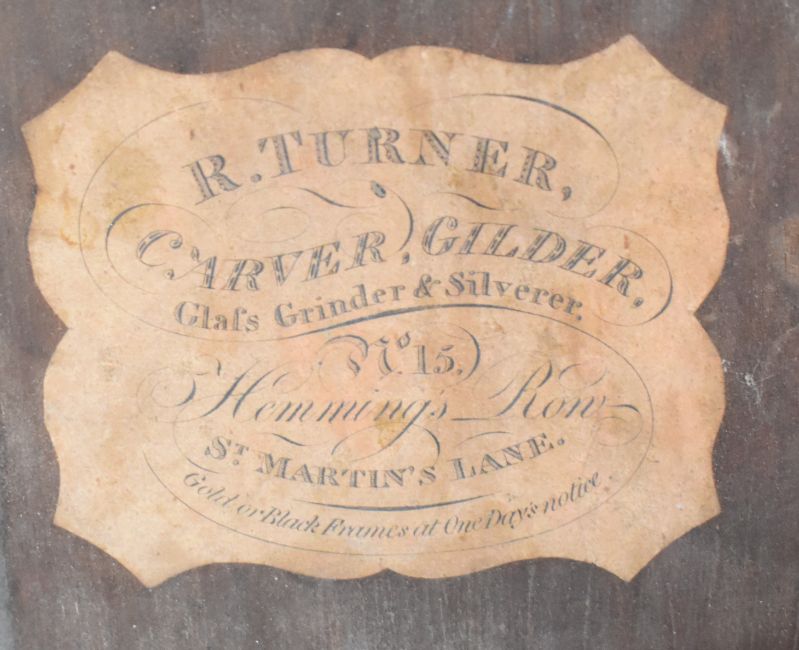 R. TURNER,
CARVER, GILDER,
Glaſs Grinder & Silverer,
No 15,
Hemming's Row
ST MARTIN'S LANE.
Gold or Black Frames at One Day's notice